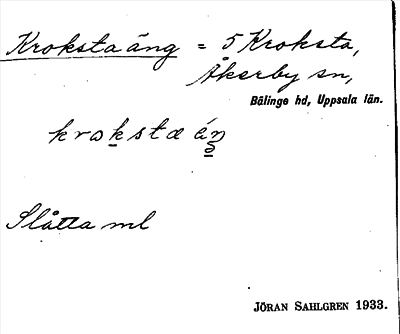 Kroksta äng = 5 Kroksta,
Åkerby sn,
Bälinge hd, Uppsala län.
krokstæ én
Slåtta ml
JÖRAN SAHLGREN 1933.